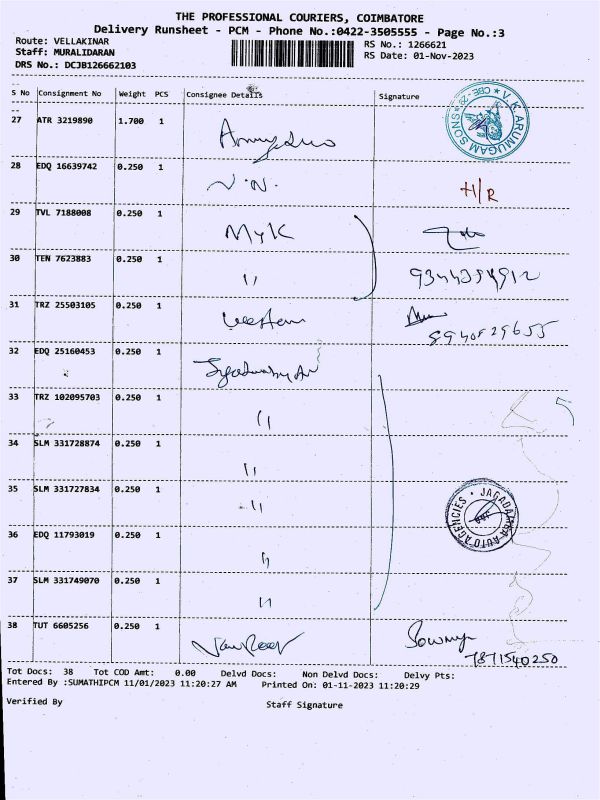 THE PROFESSIONAL COURIERS, COIMBATORE
Delivery Runsheet - PCM - Phone No.:0422-3505555 - Page No.:3
Route: VELLAKINAR RS No.: 1266621
Staff: MURALIDARAN RS Date: 01-Nov-2023
DRS No.: DCJB126662103
S No Consignment No Weight PCS Consignee Details Signature
27 ATR 3219890 1.700 1
V. K. ARUMUGAM SONS ★ CBE-29 ★
28 EDQ 16639742 0.250 1 V.N. H/R
29 TVL 7188008 0.250 1 MyK
30 TEN 7623883 0.250 1 "
31 TRZ 25503105 0.250 1 Western
8940529655
32 EDQ 25160453 0.250 1
33 TRZ 102095703 0.250 1 "
34 SLM 331728874 0.250 1 "
35 SLM 331727834 0.250 1 "
JAGADAMBA AUTO AGENCIES
36 EDQ 11793019 0.250 1 "
37 SLM 331749070 0.250 1 "
38 TUT 6605256 0.250 1 Sowmya
7871540250
Tot Docs: 38 Tot COD Amt: 0.00 Delvd Docs: Non Delvd Docs: Delvy Pts:
Entered By :SUMATHIPCM 11/01/2023 11:20:27 AM Printed On: 01-11-2023 11:20:29
Verified By Staff Signature